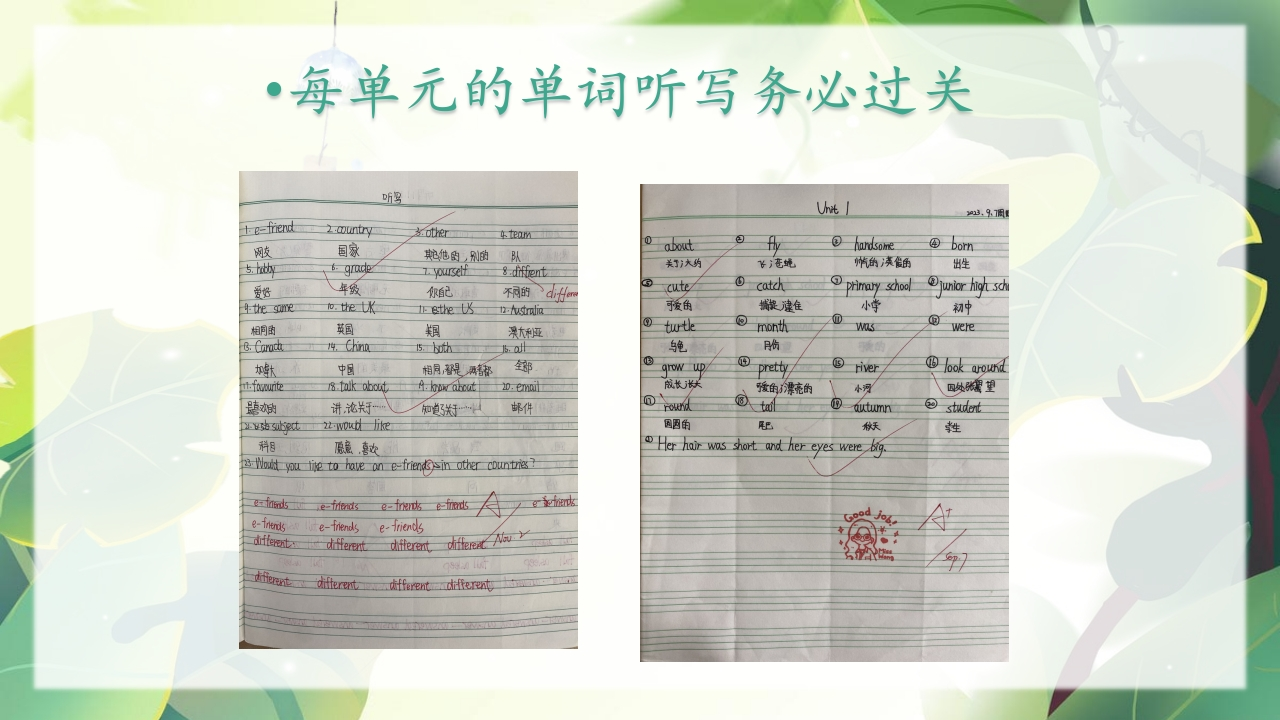 •每单元的单词听写务必过关
听写
1. e-friend 2. country 3. other 4. team
网友 国家 其他的，别的 队
5. hobby 6. grade 7. yourself 8. diffrent
爱好 年级 你自己 不同的 differen
9. the same 10. the UK 11. the US 12. Australia
相同的 英国 美国 澳大利亚
13. Canada 14. China 15. both 16. all
加拿大 中国 全部
17. favourite 18. talk about 19. know about 20. email
最喜欢的 讲,论关于…… 知道/关于…… 邮件
21. subject 22. would like
科目 愿意,喜欢
23. Would you like to have an e-friends in other countries?
e-friends e-friends e-friends e-friends A e-friends
e-friends e-friends e-friends
different different different different Nov 2
different different different different
Unit 1 2023.9.7周四
① about ② fly ③ handsome ④ born
关于;大约 飞;苍蝇 帅气的;英俊的 出生
⑤ cute ⑥ catch ⑦ primary school ⑧ junior high scho
可爱的 捕捉,逮住 小学 初中
⑨ turtle ⑩ month ⑪ was ⑫ were
乌龟 月份
⑬ grow up ⑭ pretty ⑮ river ⑯ look around
成长;长大 漂亮的 小河 四处 望
⑰ round ⑱ tail ⑲ autumn ⑳ student
圆圆的 尾巴 秋天 学生
㉑ Her hair was short and her eyes were big.
Good job!
A+
Miss Wang
Sep.7